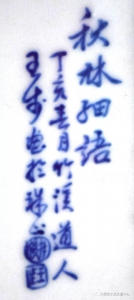 秋林細語
丁亥春月竹溪道人
王步画於珠山